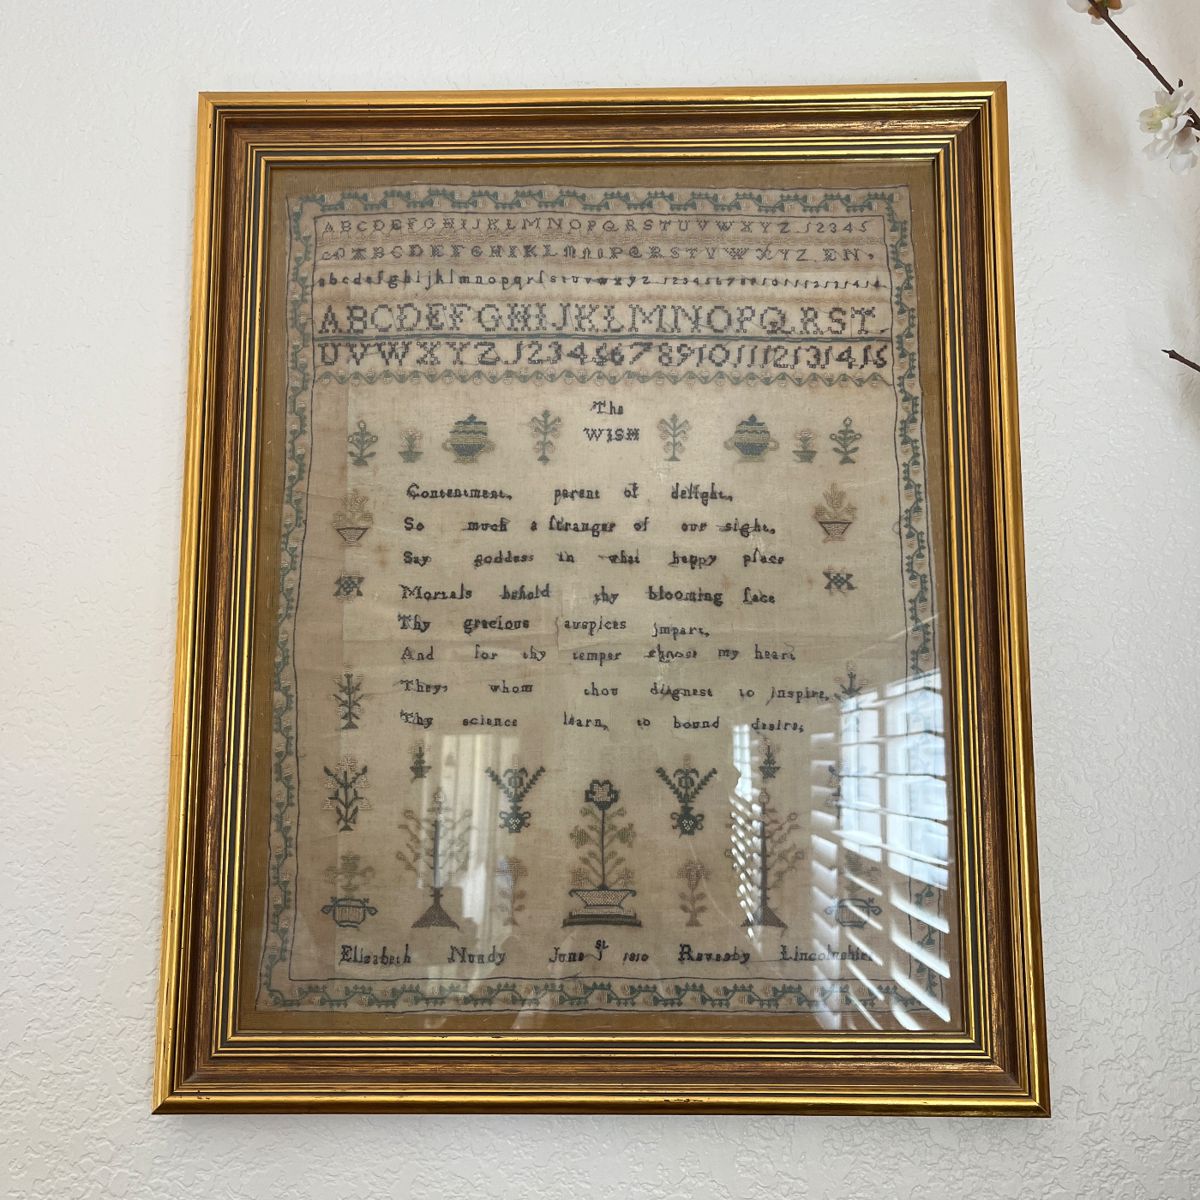 ABCDEFGHIJKLMNOPQRSTUVWXYZ 12345
ABCDEFGHIKLMNOPQRSTVWXYZ EN
abcdefghijklmnopqrſstuvwxyz
ABCDEFGHIJKLMNOPQRST
UVWXYZ 123456789101112131415
The
WISH
Contentment, parent of delight,
So much a ſtranger of our sight,
Say goddess in what happy place
Mortals behold thy blooming face
Thy gracious auspices impart,
And for thy temper choose my heart
They, whom thou diignest to inspire,
Thy science learn, to bound desire,
Elizabeth Nundy June 1st 1810 Revesby Lincolnshire